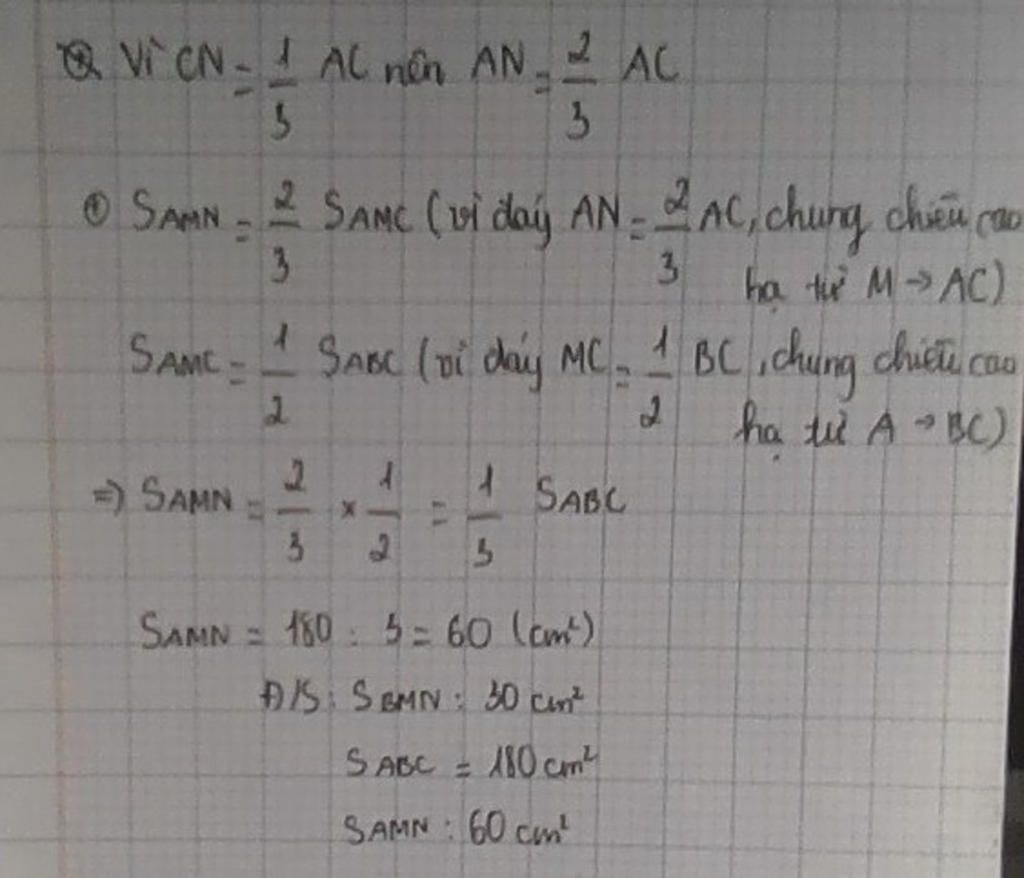 ⊛ Vì CN = 1/3 AC nên AN = 2/3 AC
⊕ SAMN = 2/3 SAMC (vì đáy AN = 2/3 AC, chung chiều cao
hạ từ M → AC)
SAMC = 1/2 SABC (vì đáy MC = 1/2 BC, chung chiều cao
hạ từ A → BC)
=) SAMN = 2/3 × 1/2 = 1/3 SABC
SAMN = 180 : 3 = 60 (cm²)
Đ/S : SBMN : 30 cm²
SABC = 180 cm²
SAMN : 60 cm²